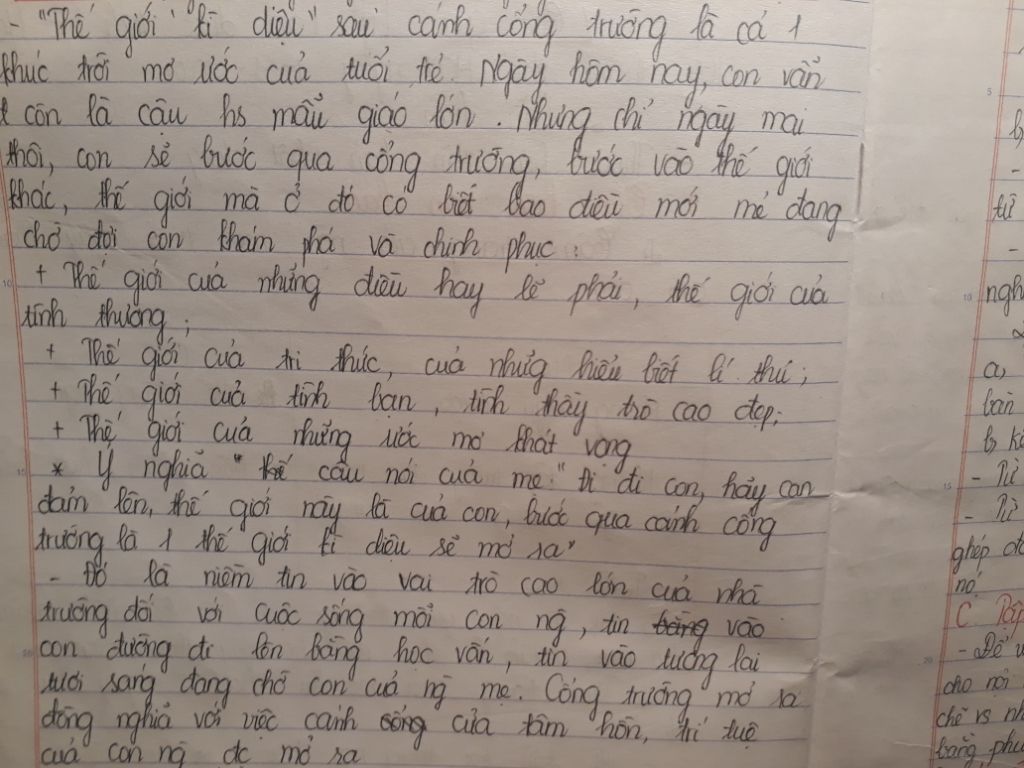 - "Thế giới "kì diệu" sau cánh cổng trường là cả 1
khúc trời mơ ước của tuổi trẻ. Ngày hôm nay, con vẫn
còn là cậu hs mẫu giáo lớn. Nhưng chỉ ngày mai
thôi, con sẽ bước qua cổng trường, bước vào thế giới
khác, thế giới mà ở đó có biết bao điều mới mẻ đang
chờ đợi con khám phá và chinh phục:
+ Thế giới của những điều hay lẽ phải, thế giới của
tình thương;
+ Thế giới của tri thức, của những hiểu biết lí thú;
+ Thế giới của tình bạn, tình thầy trò cao đẹp;
+ Thế giới của những ước mơ khát vọng
* Ý nghĩa câu nói của mẹ "Đi đi con, hãy can
đảm lên, thế giới này là của con, bước qua cánh cổng
trường là 1 thế giới kì diệu sẽ mở ra"
- Đó là niềm tin vào vai trò cao lớn của nhà
trường đối với cuộc sống mỗi con ng, tin vào
con đường đi lên bằng học vấn, tin vào tương lai
tươi sáng đang chờ con của ng mẹ. Cổng trường mở ra
đồng nghĩa với việc cánh cửa tâm hồn, trí tuệ
của con ng đc mở ra
b,
-
từ
-
ngh
a,
bàn
b,
- Từ
- Từ
ghép
nó.
C.
- Để v
cho nội
chẽ vs nh
bằng phư